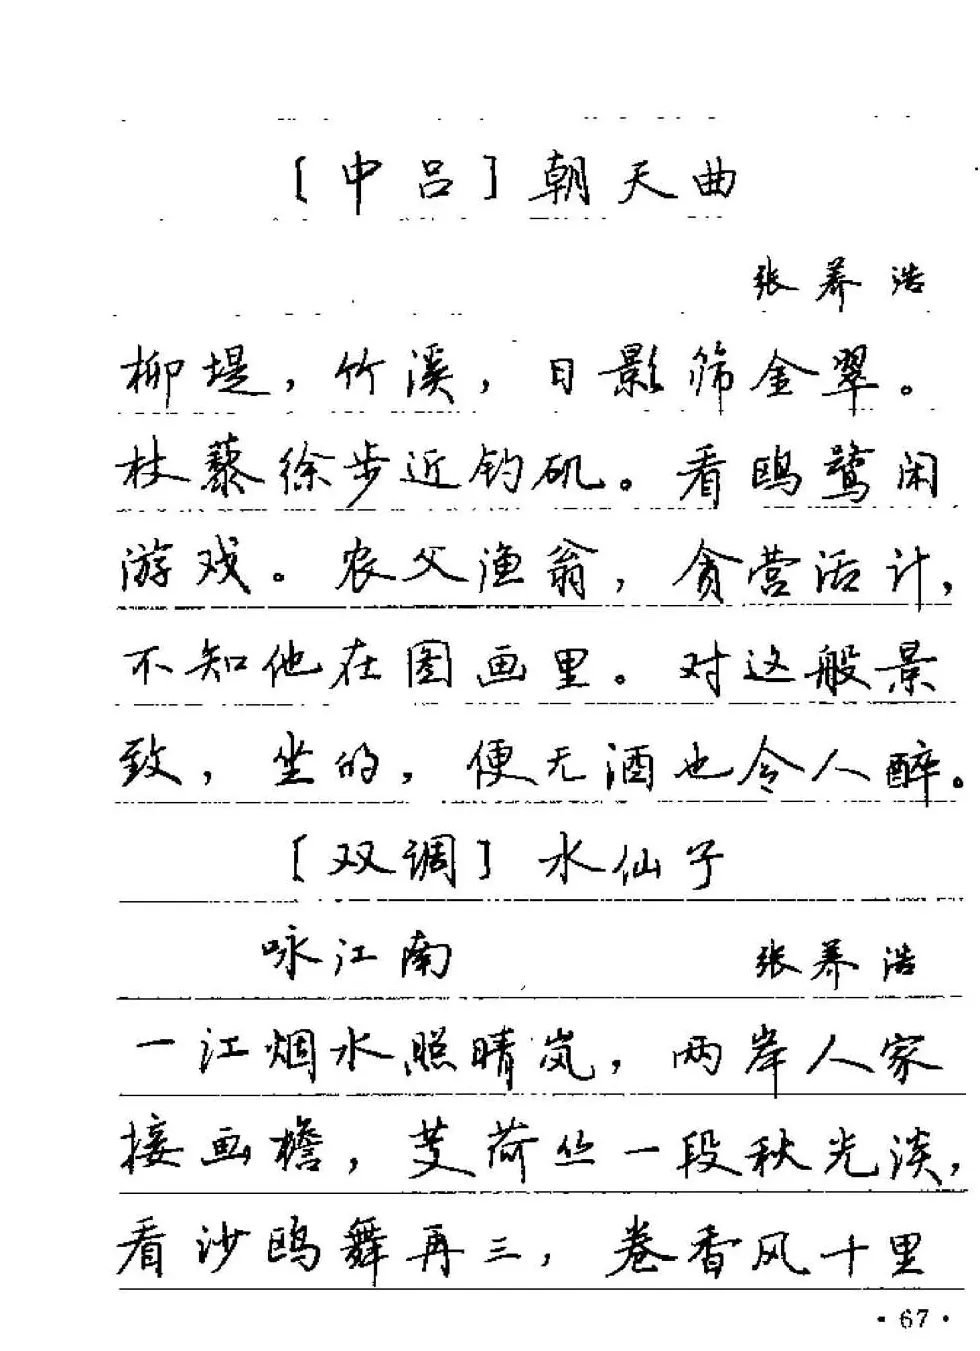 ［中吕］朝天曲
张养浩
柳堤，竹溪，日影筛金翠。
杖藜徐步近钓矶。看鸥鹭闲
游戏。农父渔翁，贪营活计，
不知他在图画里。对这般景
致，坐的，便无酒也令人醉。
［双调］水仙子
咏江南 张养浩
一江烟水照晴岚，两岸人家
接画檐，芰荷丛一段秋光淡，
看沙鸥舞再三，卷香风十里
·67·